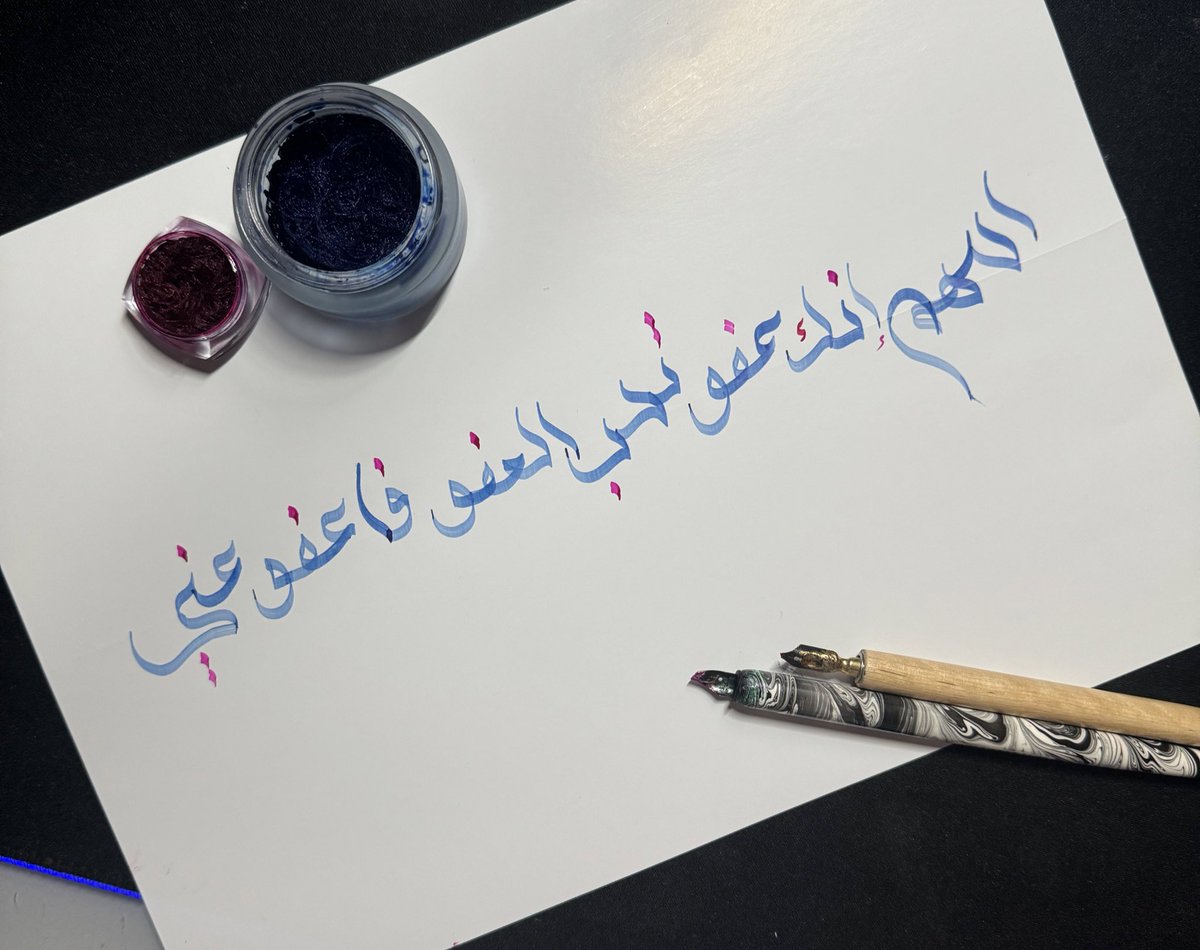 اللهم إنك عفو تحب العفو فاعفو عني